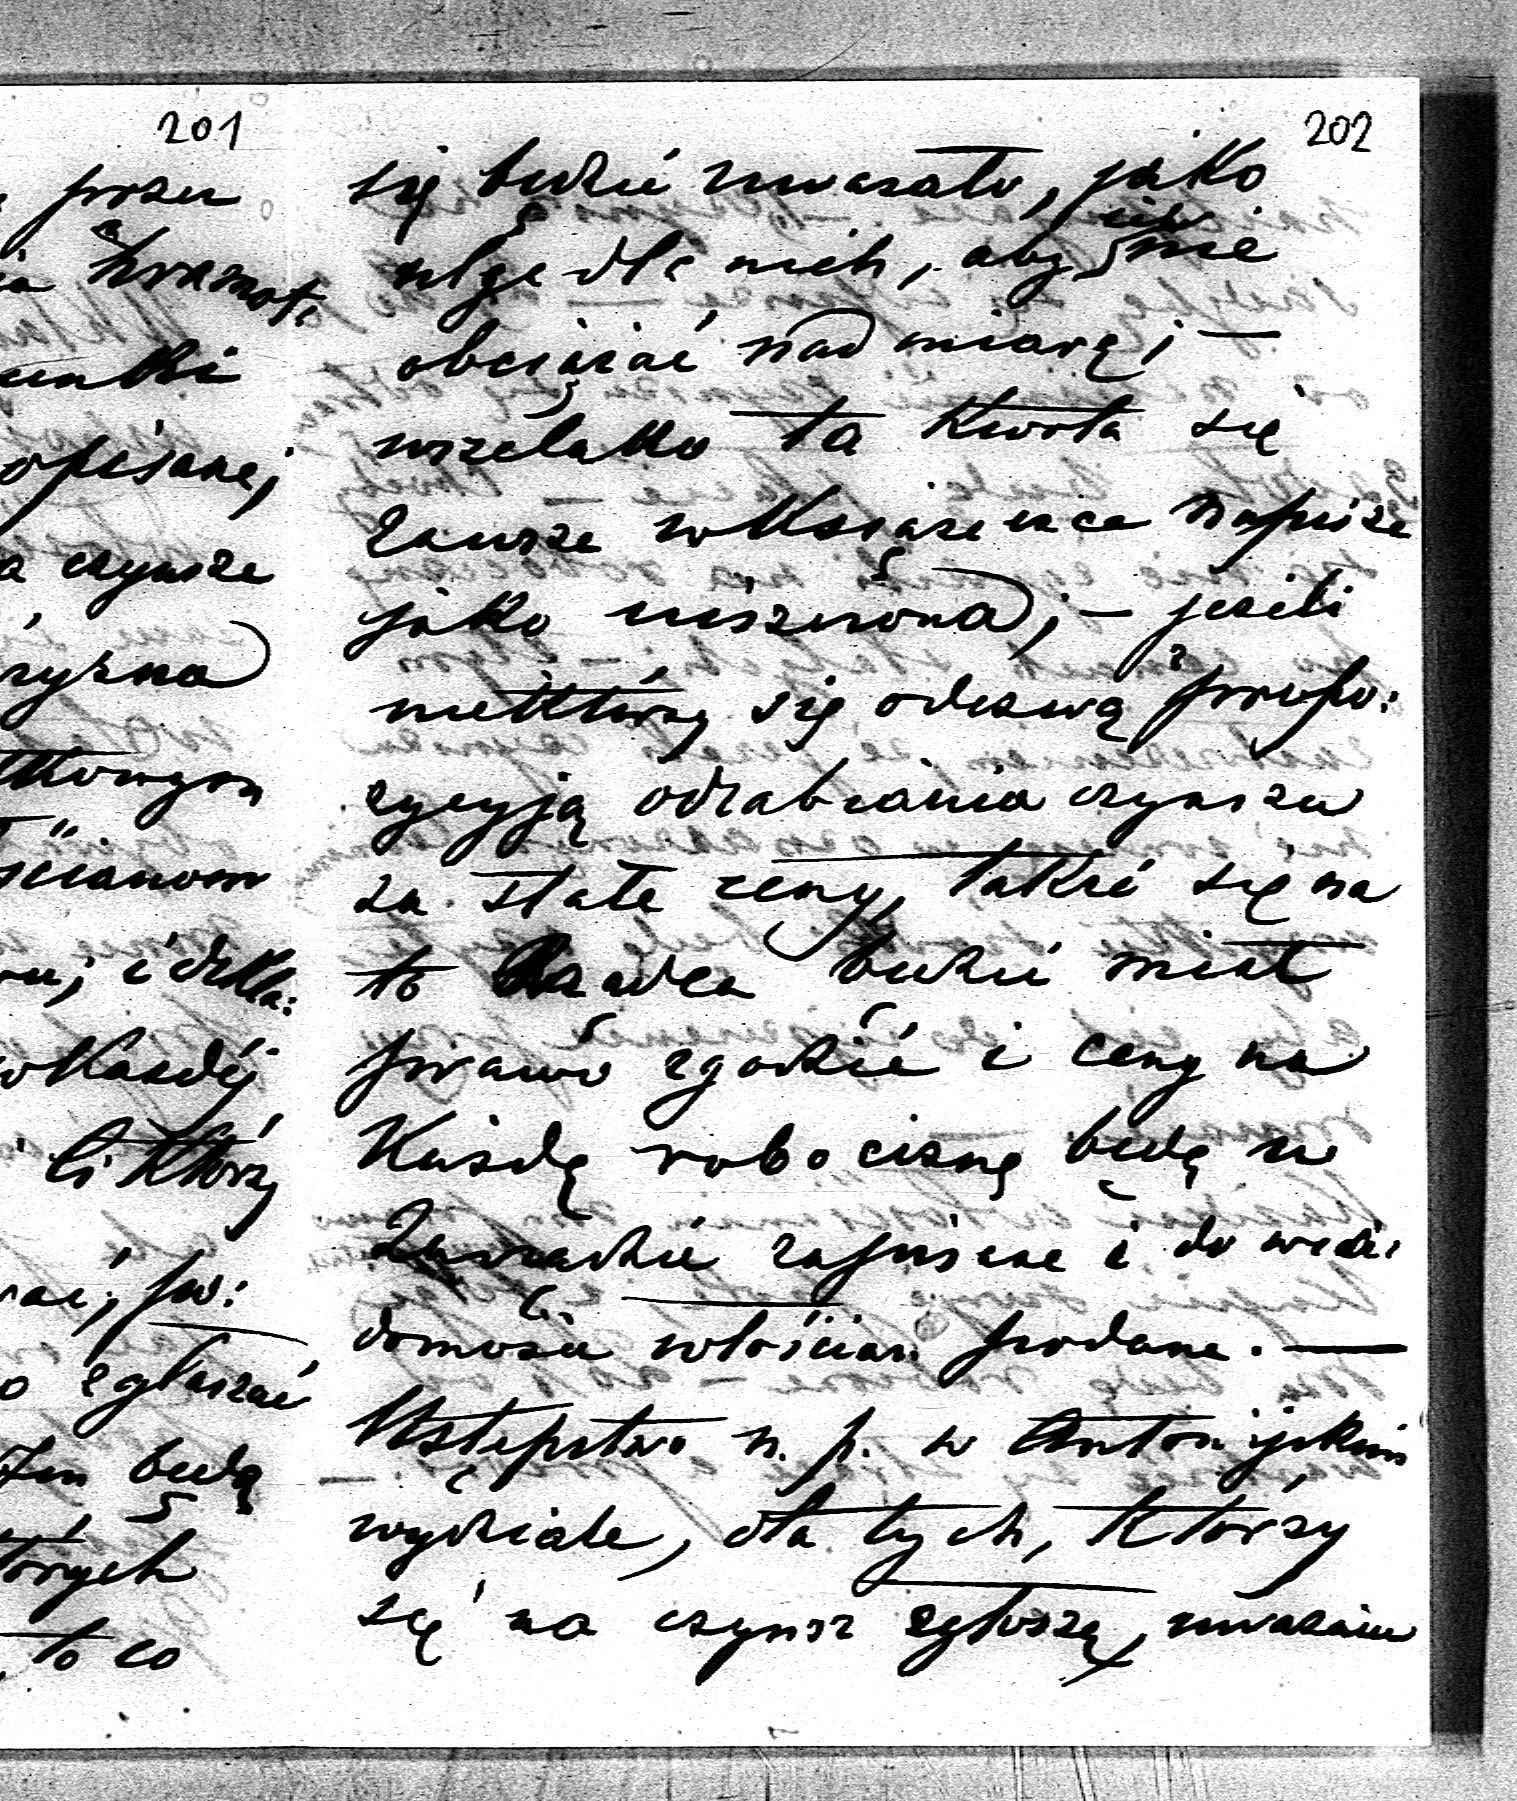 201
przu
kwamot,
unkki
opisanej
a czynsze
ryzna
tkowym
ścianom
ru; i dekla:
w każdéj
ci którzy
rać; po:
o zgłaszać
będą
tórych
to co
202
się będzie uważało, jako
ulgę dla nich, aby ich nie
obciążać nad miarę; —
wszelako ta kwota się
zawsze w książeczce napisze
jako uiszczona; — jeżeli
niektórzy się odezwą z propo:
zycyją odrabiania czynszu
za stałe ceny, także się na
to Rządca będzie miał
prawo zgodzić i ceny na
każdą robociznę będą w
Zarządzie zapisane i do wiado:
domości włościan podane. —
Ustępstwo n. p. w Antonijskim
wydziale, dla tych, którzy
się na czynsz zgłoszą, uważam